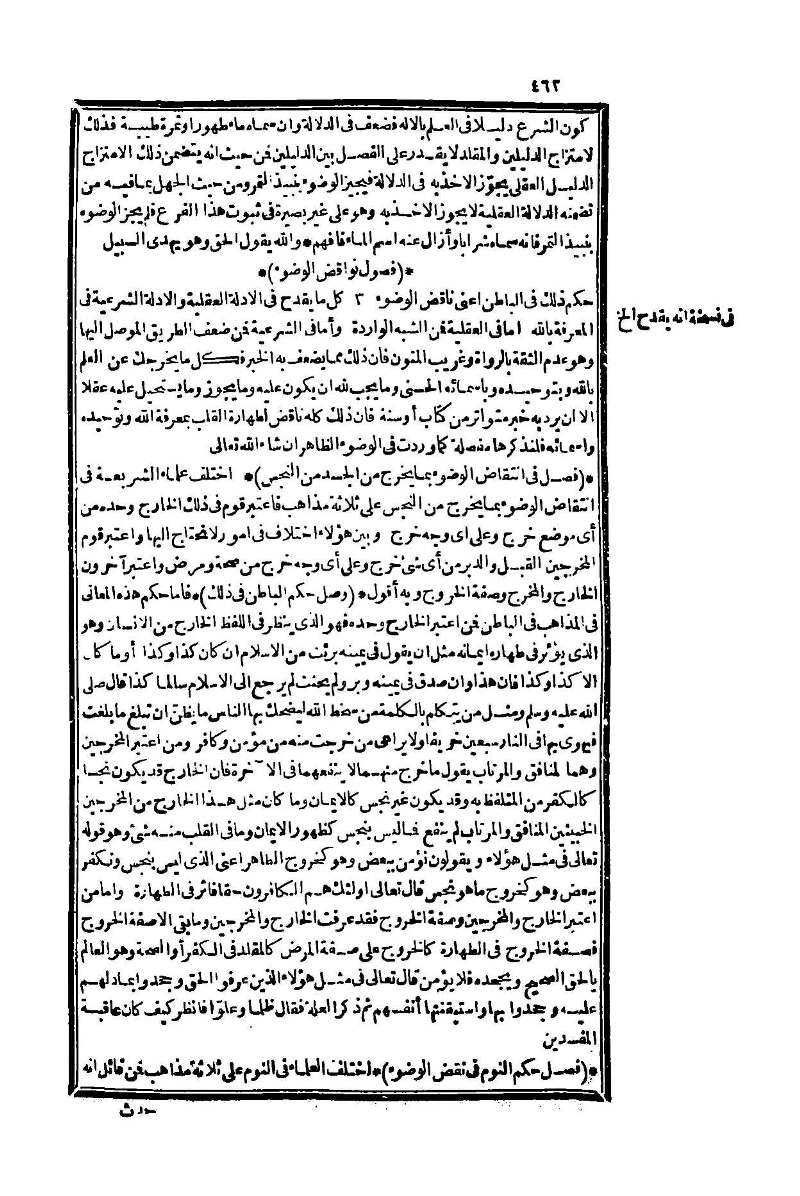 ٤٦٢
كون الشرع دليلا فى العلم بالاله فضعف فى الدلالة وان سماه ماء طهورا وتمرة طيبة فذلك
لامتزاج الدليلين والمقلد لا يقدر على الفصل بين الدليلين فمن حيث انه يتضمن ذلك الامتزاج
الدليل العقلى يجوّز الاخذ به فى الدلالة فيجيز الوضوء بنبيذ التمر ومن حيث الجهل بما فيه من
تضمنه الدلالة العقلية لا يجوز الاخذ به وهو على غير بصيرة فى ثبوت هذا الفرع فلم يجز الوضوء
بنبيذ التمر فانه سماه شرابا وأزال عنه اسم الماء فافهم * والله يقول الحق وهو يهدى السبيل
*(فصول نواقض الوضوء)*
حكم ذلك فى الباطن اعنى ناقض الوضوء ٣ كل ما يقدح فى الادلة العقلية والادلة الشرعية فى
فى نسخة انه يقدح الخ
المعرفة بالله اما فى العقلية فمن الشبه الواردة وأما فى الشرعية فمن ضعف الطريق الموصل اليها
وهو عدم الثقة بالرواة وغريب المتون فان ذلك مما يضعف به الخبر فكل ما يخرجك عن العلم
بالله وبتوحيده وباسمائه الحسنى وما يجب لله ان يكون عليه وما يجوز وما يستحيل عليه عقلا
الا ان يرد به خبر متواتر من كتاب أو سنة فان ذلك كله ناقض لطهارة القلب بمعرفة الله وتوحيده
واسمائه فلنذكرها مفصلة كما وردت فى الوضوء الظاهر ان شاء الله تعالى
*(فصل فى انتقاض الوضوء بما يخرج من الجسد من النجس)* اختلف علماء الشريعة فى
انتقاض الوضوء بما يخرج من النجس على ثلاثة مذاهب فاعتبر قوم فى ذلك الخارج وحده من
أى موضع خرج وعلى اى وجه خرج وبين هؤلاء اختلاف فى امور لا نحتاج اليها واعتبر قوم
المخرجين القبل والدبر من أى شئ خرج وعلى أى وجه خرج من صحة ومرض واعتبر آخرون
الخارج والمخرج وصفة الخروج وبه أقول * (وصل حكم الباطن فى ذلك)* فاما حكم هذه المعانى
فى المذاهب فى الباطن فمن اعتبر الخارج وحده فهو الذى ينظر فى اللفظ الخارج من الانسان وهو
الذى يؤثر فى طهارة ايمانه مثل ان يقول فى يمينه برئت من الاسلام ان كان كذا وكذا أو ما كان
الا كذا وكذا فان هذا وان صدق فى يمينه وبر ولم يحنث لم يرجع الى الاسلام سالما كذا قال صلى
الله عليه وسلم ومثل من يتكلم بالكلمة من سخط الله ليضحك بها الناس ما يظنّ ان تبلغ ما بلغت
فيهوى بها فى النار سبعين خريفا ولا يراعى من خرجت منه من مؤمن وكافر ومن اعتبر المخرجين
وهما المنافق والمرتاب يقول ما خرج منهما لا ينفعهما فى الآخرة فان الخارج قد يكون نجسا
كالكفر من المتلفظ به وقد يكون غير نجس كالايمان وما كان مثل هذا الخارج من المخرجين
الخبيثين المنافق والمرتاب لم ينتفع فاليس بنجس كظهور الايمان وما فى القلب منه شئ وهو قوله
تعالى فى مثل هؤلاء ويقولون نؤمن ببعض وهو كخروج الطاهر اعنى الذى ليس بنجس ونكفر
ببعض وهو كخروج ما هو نجس قال تعالى اولئك هم الكافرون حقا فاثر فى الطهارة وامامن
اعتبر الخارج والمخرجين وصفة الخروج فقد عرفت الخارج والمخرجين وما بقى الا صفة الخروج
فصفة الخروج فى الطهارة كالخروج على صفة المرض كالمقلد فى الكفر أو الصحة وهو العالم
بالحق الصحيح ويجحده فلا يؤمن قال تعالى فى مثل هؤلاء الذين عرفوا الحق وجحدوا بما دلهم
عليه وجحدوا بها واستيقنتها أنفسهم ثم ذكر العلة فقال ظلما وعلوّا فانظر كيف كان عاقبة
المفسدين
*(فصل حكم النوم فى نقض الوضوء)* اختلف العلماء فى النوم على ثلاثة مذاهب فمن قائل انه
حدث